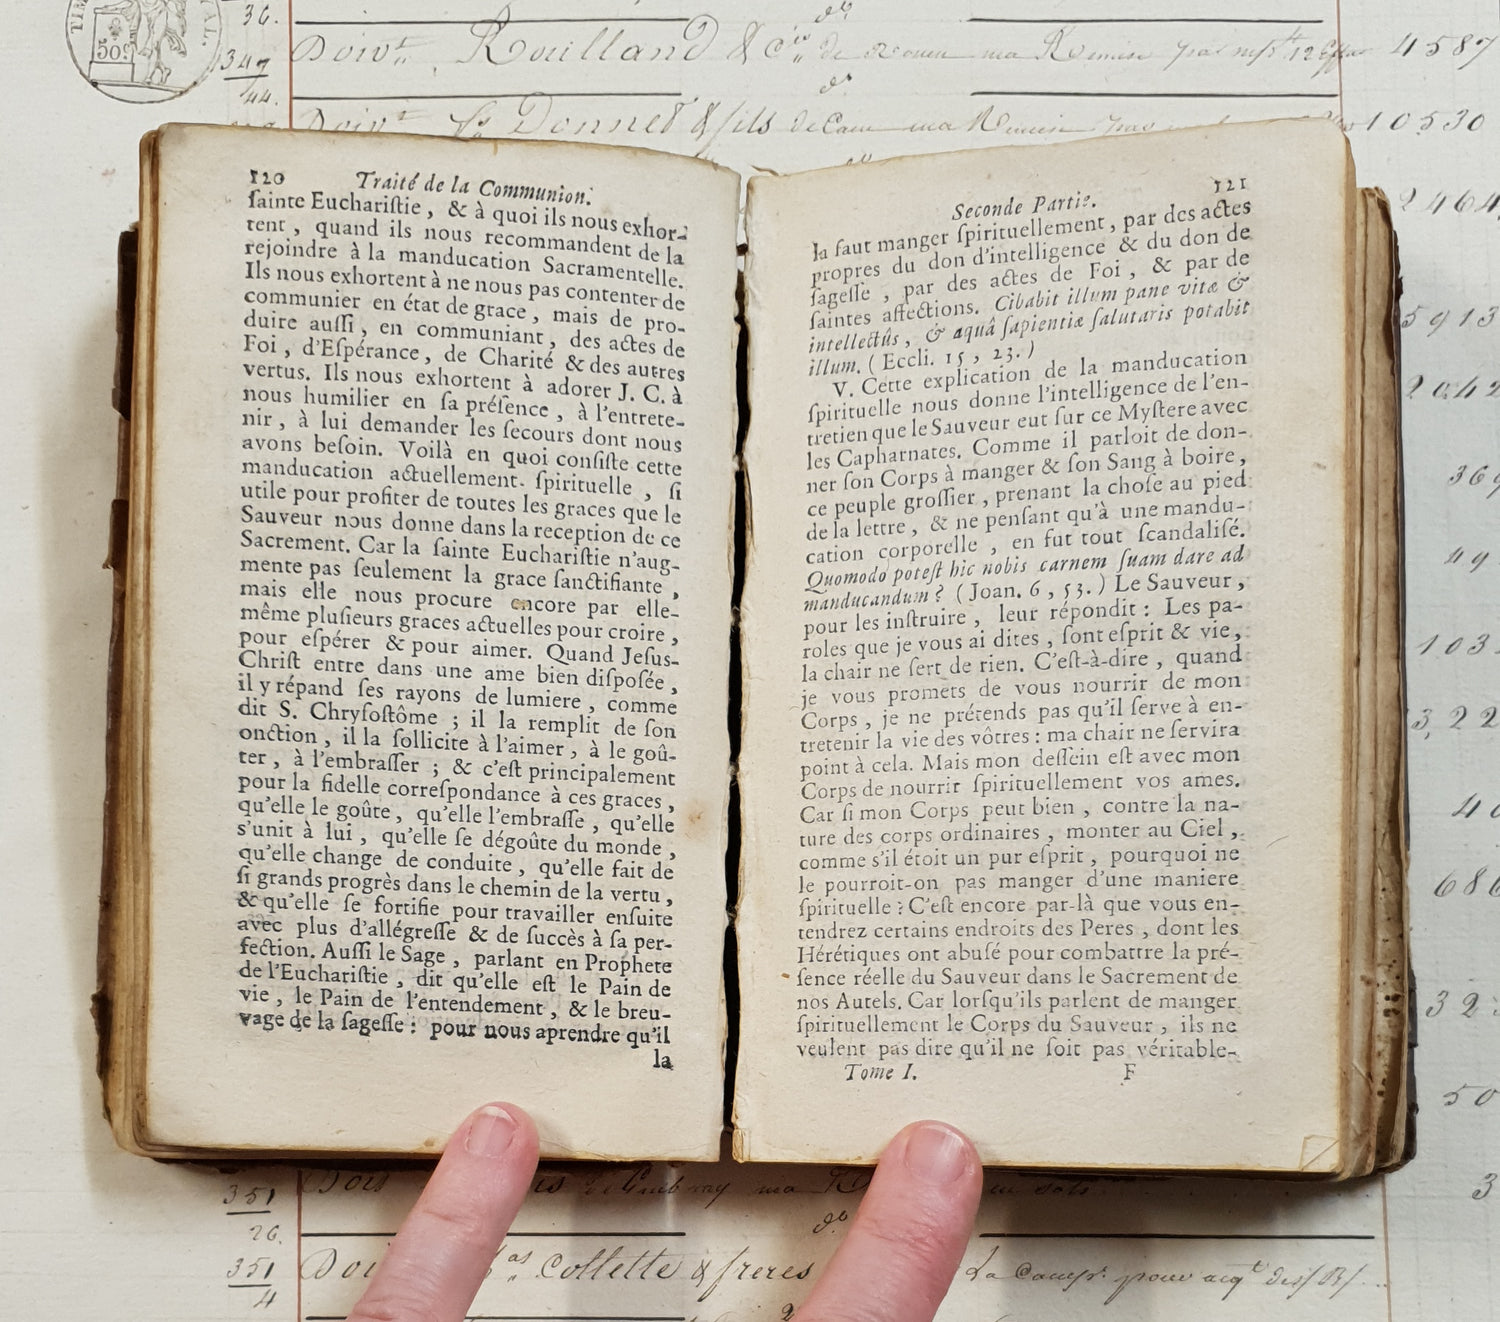 TIM
AL.
50c
36.
do
347
Doivt. Rouilland & Cie de Rouen ma Remise
4587
44.
do
Doivt. Donnet & fils de Caen ma Remise
10530
120
Traité de la Communion.
ſainte Euchariſtie, & à quoi ils nous exhor-
tent, quand ils nous recommandent de la
rejoindre à la manducation Sacramentelle.
Ils nous exhortent à ne nous pas contenter de
communier en état de grace, mais de pro-
duire auſſi, en communiant, des actes de
Foi, d'Eſpérance, de Charité & des autres
vertus. Ils nous exhortent à adorer J. C. à
nous humilier en ſa préſence, à l'entrete-
nir, à lui demander les ſecours dont nous
avons beſoin. Voilà en quoi conſiſte cette
manducation actuellement-ſpirituelle, ſi
utile pour profiter de toutes les graces que le
Sauveur nous donne dans la reception de ce
Sacrement. Car la ſainte Euchariſtie n'aug-
mente pas ſeulement la grace ſanctifiante,
mais elle nous procure encore par elle-
même pluſieurs graces actuelles pour croire,
pour eſpérer & pour aimer. Quand Jeſus-
Chriſt entre dans une ame bien diſpoſée,
il y répand ſes rayons de lumiere, comme
dit S. Chryſoſtôme ; il la remplit de ſon
onction, il la ſollicite à l'aimer, à le goû-
ter, à l'embraſſer ; & c'eſt principalement
pour la fidelle correſpondance à ces graces,
qu'elle le goûte, qu'elle l'embraſſe, qu'elle
s'unit à lui, qu'elle ſe dégoûte du monde,
qu'elle change de conduite, qu'elle fait de
ſi grands progrès dans le chemin de la vertu,
& qu'elle ſe fortifie pour travailler enſuite
avec plus d'allégreſſe & de ſuccès à ſa per-
fection. Auſſi le Sage, parlant en Prophete
de l'Euchariſtie, dit qu'elle eſt le Pain de
vie, le Pain de l'entendement, & le breu-
vage de la ſageſſe : pour nous aprendre qu'il
la
Seconde Partie.
121
la faut manger ſpirituellement, par des actes
propres du don d'intelligence & du don de
ſageſſe, par des actes de Foi, & par de
ſaintes affections. Cibabit illum pane vitæ &
intellectûs, & aquâ ſapientiæ ſalutaris potabit
illum. (Eccli. 15, 23.)
V. Cette explication de la manducation
ſpirituelle nous donne l'intelligence de l'en-
tretien que le Sauveur eut ſur ce Myſtere avec
les Capharnates. Comme il parloit de don-
ner ſon Corps à manger & ſon Sang à boire,
ce peuple groſſier, prenant la choſe au pied
de la lettre, & ne penſant qu'à une mandu-
cation corporelle, en fut tout ſcandaliſé.
Quomodo poteſt hic nobis carnem ſuam dare ad
manducandum? (Joan. 6, 53.) Le Sauveur,
pour les inſtruire, leur répondit : Les pa-
roles que je vous ai dites, ſont eſprit & vie,
la chair ne ſert de rien. C'eſt-à-dire, quand
je vous promets de vous nourrir de mon
Corps, je ne prétends pas qu'il ſerve à en-
tretenir la vie des vôtres : ma chair ne ſervira
point à cela. Mais mon deſſein eſt avec mon
Corps de nourrir ſpirituellement vos ames.
Car ſi mon Corps peut bien, contre la na-
ture des corps ordinaires, monter au Ciel,
comme s'il étoit un pur eſprit, pourquoi ne
le pourroit-on pas manger d'une maniere
ſpirituelle ? C'eſt encore par-là que vous en-
tendrez certains endroits des Peres, dont les
Hérétiques ont abuſé pour combattre la pré-
ſence réelle du Sauveur dans le Sacrement de
nos Autels. Car lorſqu'ils parlent de manger
ſpirituellement le Corps du Sauveur, ils ne
veulent pas dire qu'il ne ſoit pas véritable-
Tome I.
F
2464
5913
2042
369
49
103
3,22
40
686
32
50
3
351
26.
do
351
Collette & freres
4